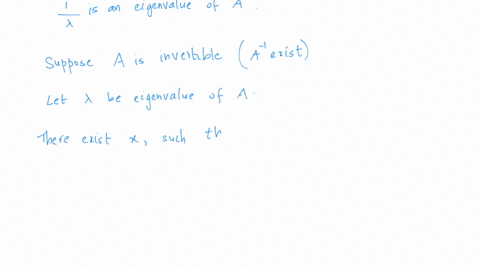 1/λ is an eigenvalue of A.
Suppose A is invertible (A⁻¹ exist)
Let λ be eigenvalue of A.
There exist x, such th